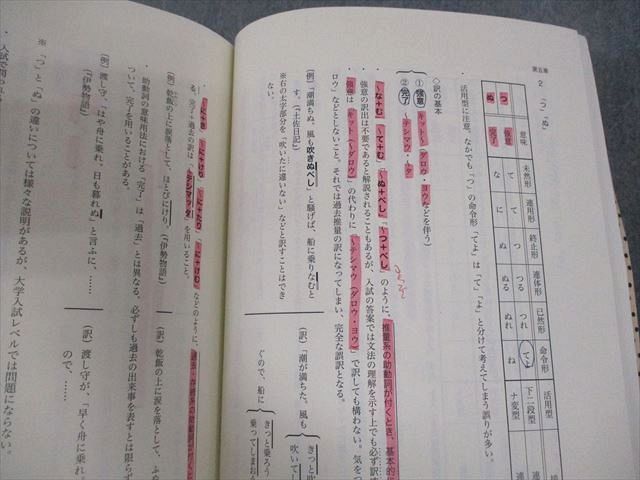 第五章
2 「つ」「ぬ」
意味 未然形 連用形 終止形 連体形 已然形 命令形 活用型
つ 強意 て て つ つる つれ てよ 下二段型
ぬ 完了 な に ぬ ぬる ぬれ ね ナ変型
活用型に注意。なかでも「つ」の命令形「てよ」は「て」「よ」と分けて考えてしまう誤りが多い。
◇訳の基本
① 強意 キット〜(ダロウ・ヨウなどを伴う)
② 完了 〜テシマウ・〜タ
「〜な+む」「〜て+む」「〜ぬ+べし」「〜つ+べし」のように、推量系の助動詞が付くとき、基本的に
強意の訳出は不要であると解説されることもあるが、入試の答案では文法の理解を示す上でも必ず訳
強意は キット(〜ダロウ・ヨウ)の代わりに 〜テシマウ(ダロウ・ヨウ)で訳しても構わない。気をつ
ロウ」などとしないこと。それでは過去推量の訳になってしまい、完全な誤訳となる。
(例)「潮満ちぬ。風も吹きぬべし」と騒げば、船に乗りなむと
す。(『土佐日記』)
※右の太字部分を「吹いたに違いない」などと訳すことはでき
ない。
(訳)「潮が満ちた。風も
きっと吹
吹いてし
ぐので、船に
きっと乗ろう
乗ってしまお
「〜に+き」「〜に+けり」「〜に+たり」「〜に+けむ」などのように、過去・存続系の助動詞が付くと
る。完了+過去の訳は、「〜テシマッタ」を用いること。
助動詞の意味用法における「完了」は「過去」とは異なる。必ずしも過去の出来事を表すとは限らず
ついて、完了を用いることがある。
(例)乾飯の上に涙落として、ほとびにけり。(『伊勢物語』)
(訳)乾飯の上に涙を落として、ふや
(例)渡し守、「はや舟に乗れ。日も暮れぬ」と言ふに、……
(『伊勢物語』)
(訳)渡し守が、「早く舟に乗れ
ので、……
※「つ」と「ぬ」の違いについては様々な説明があるが、大学入試レベルでは問題にならない。